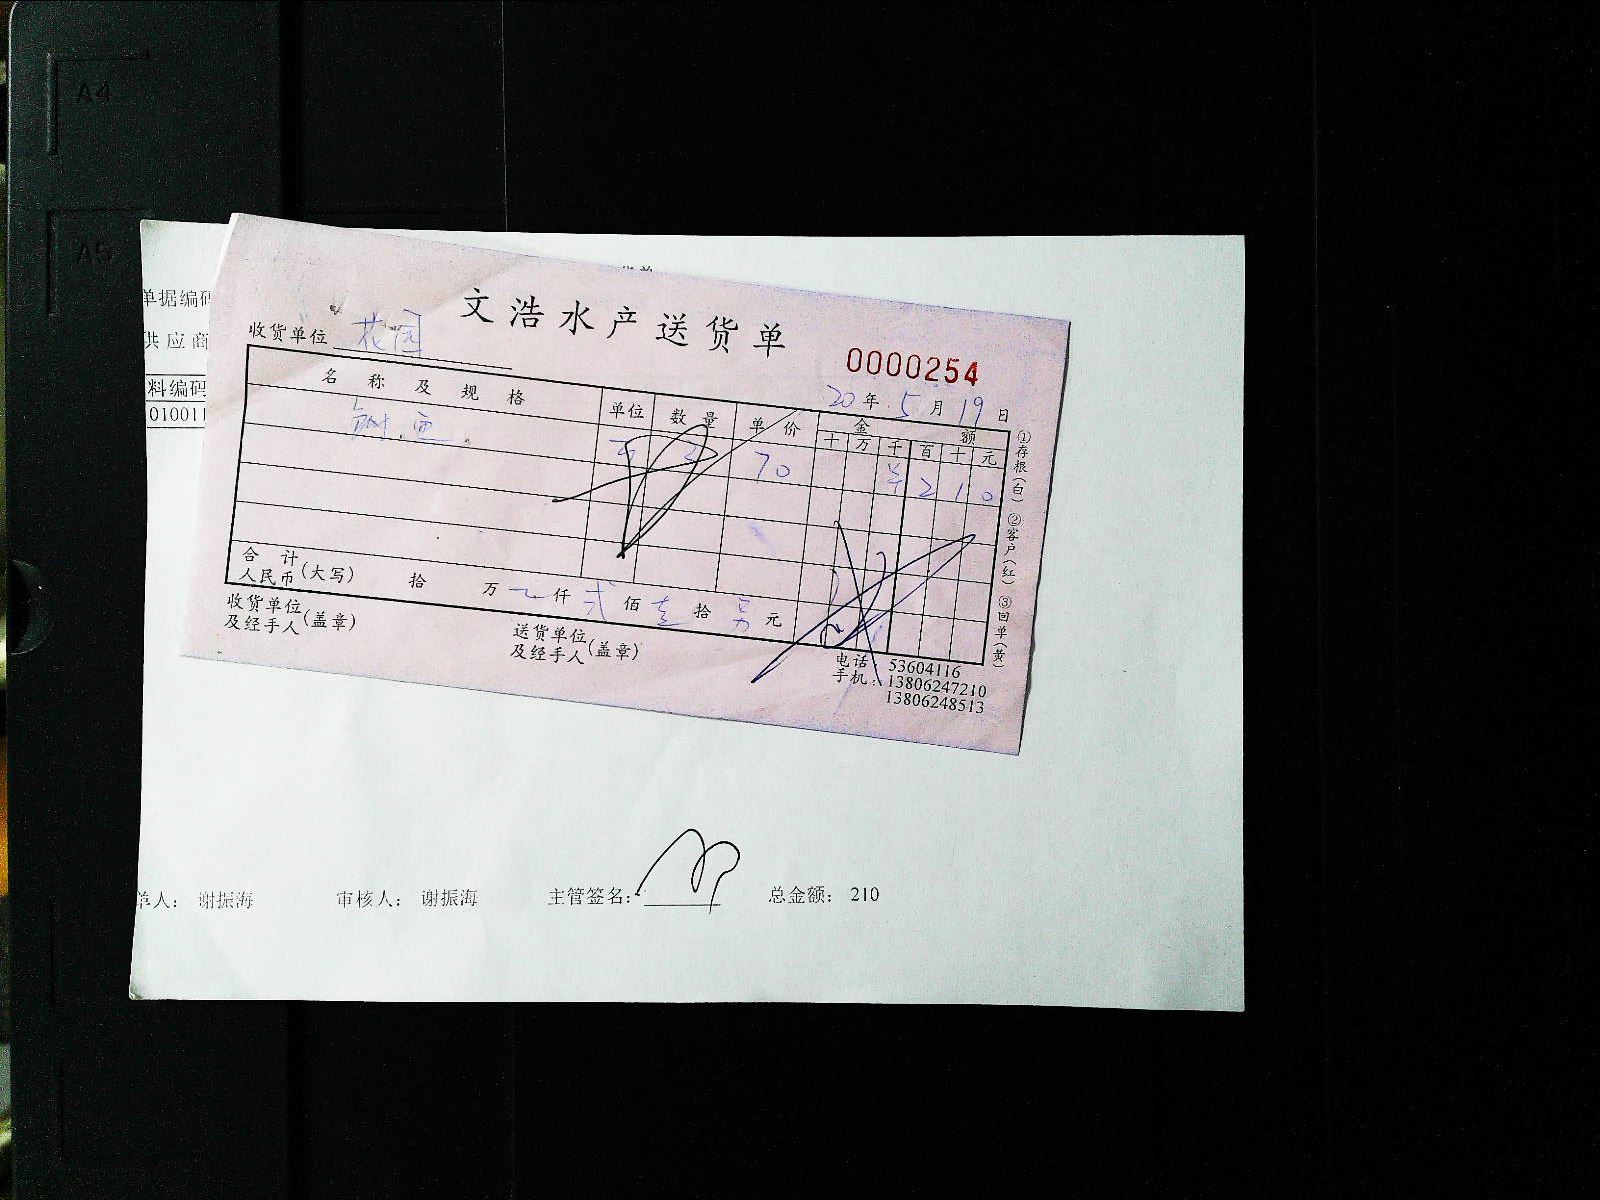 A4
A5
单据编码
供应商
料编码
010011
文浩水产送货单
收货单位 花园
0000254
20年5月19日
名称及规格 单位 数量 单价 金额
十 万 千 百 十 元
70 ¥ 2 1 0
合计
人民币(大写) 拾 万 仟 弍 佰 壹 拾 元
收货单位
及经手人(盖章)
送货单位
及经手人(盖章)
电话 53604116
手机:13806247210
13806248513
①存根(白) ②客户(红) ③回单(黄)
单人: 谢振海 审核人: 谢振海 主管签名: 总金额: 210